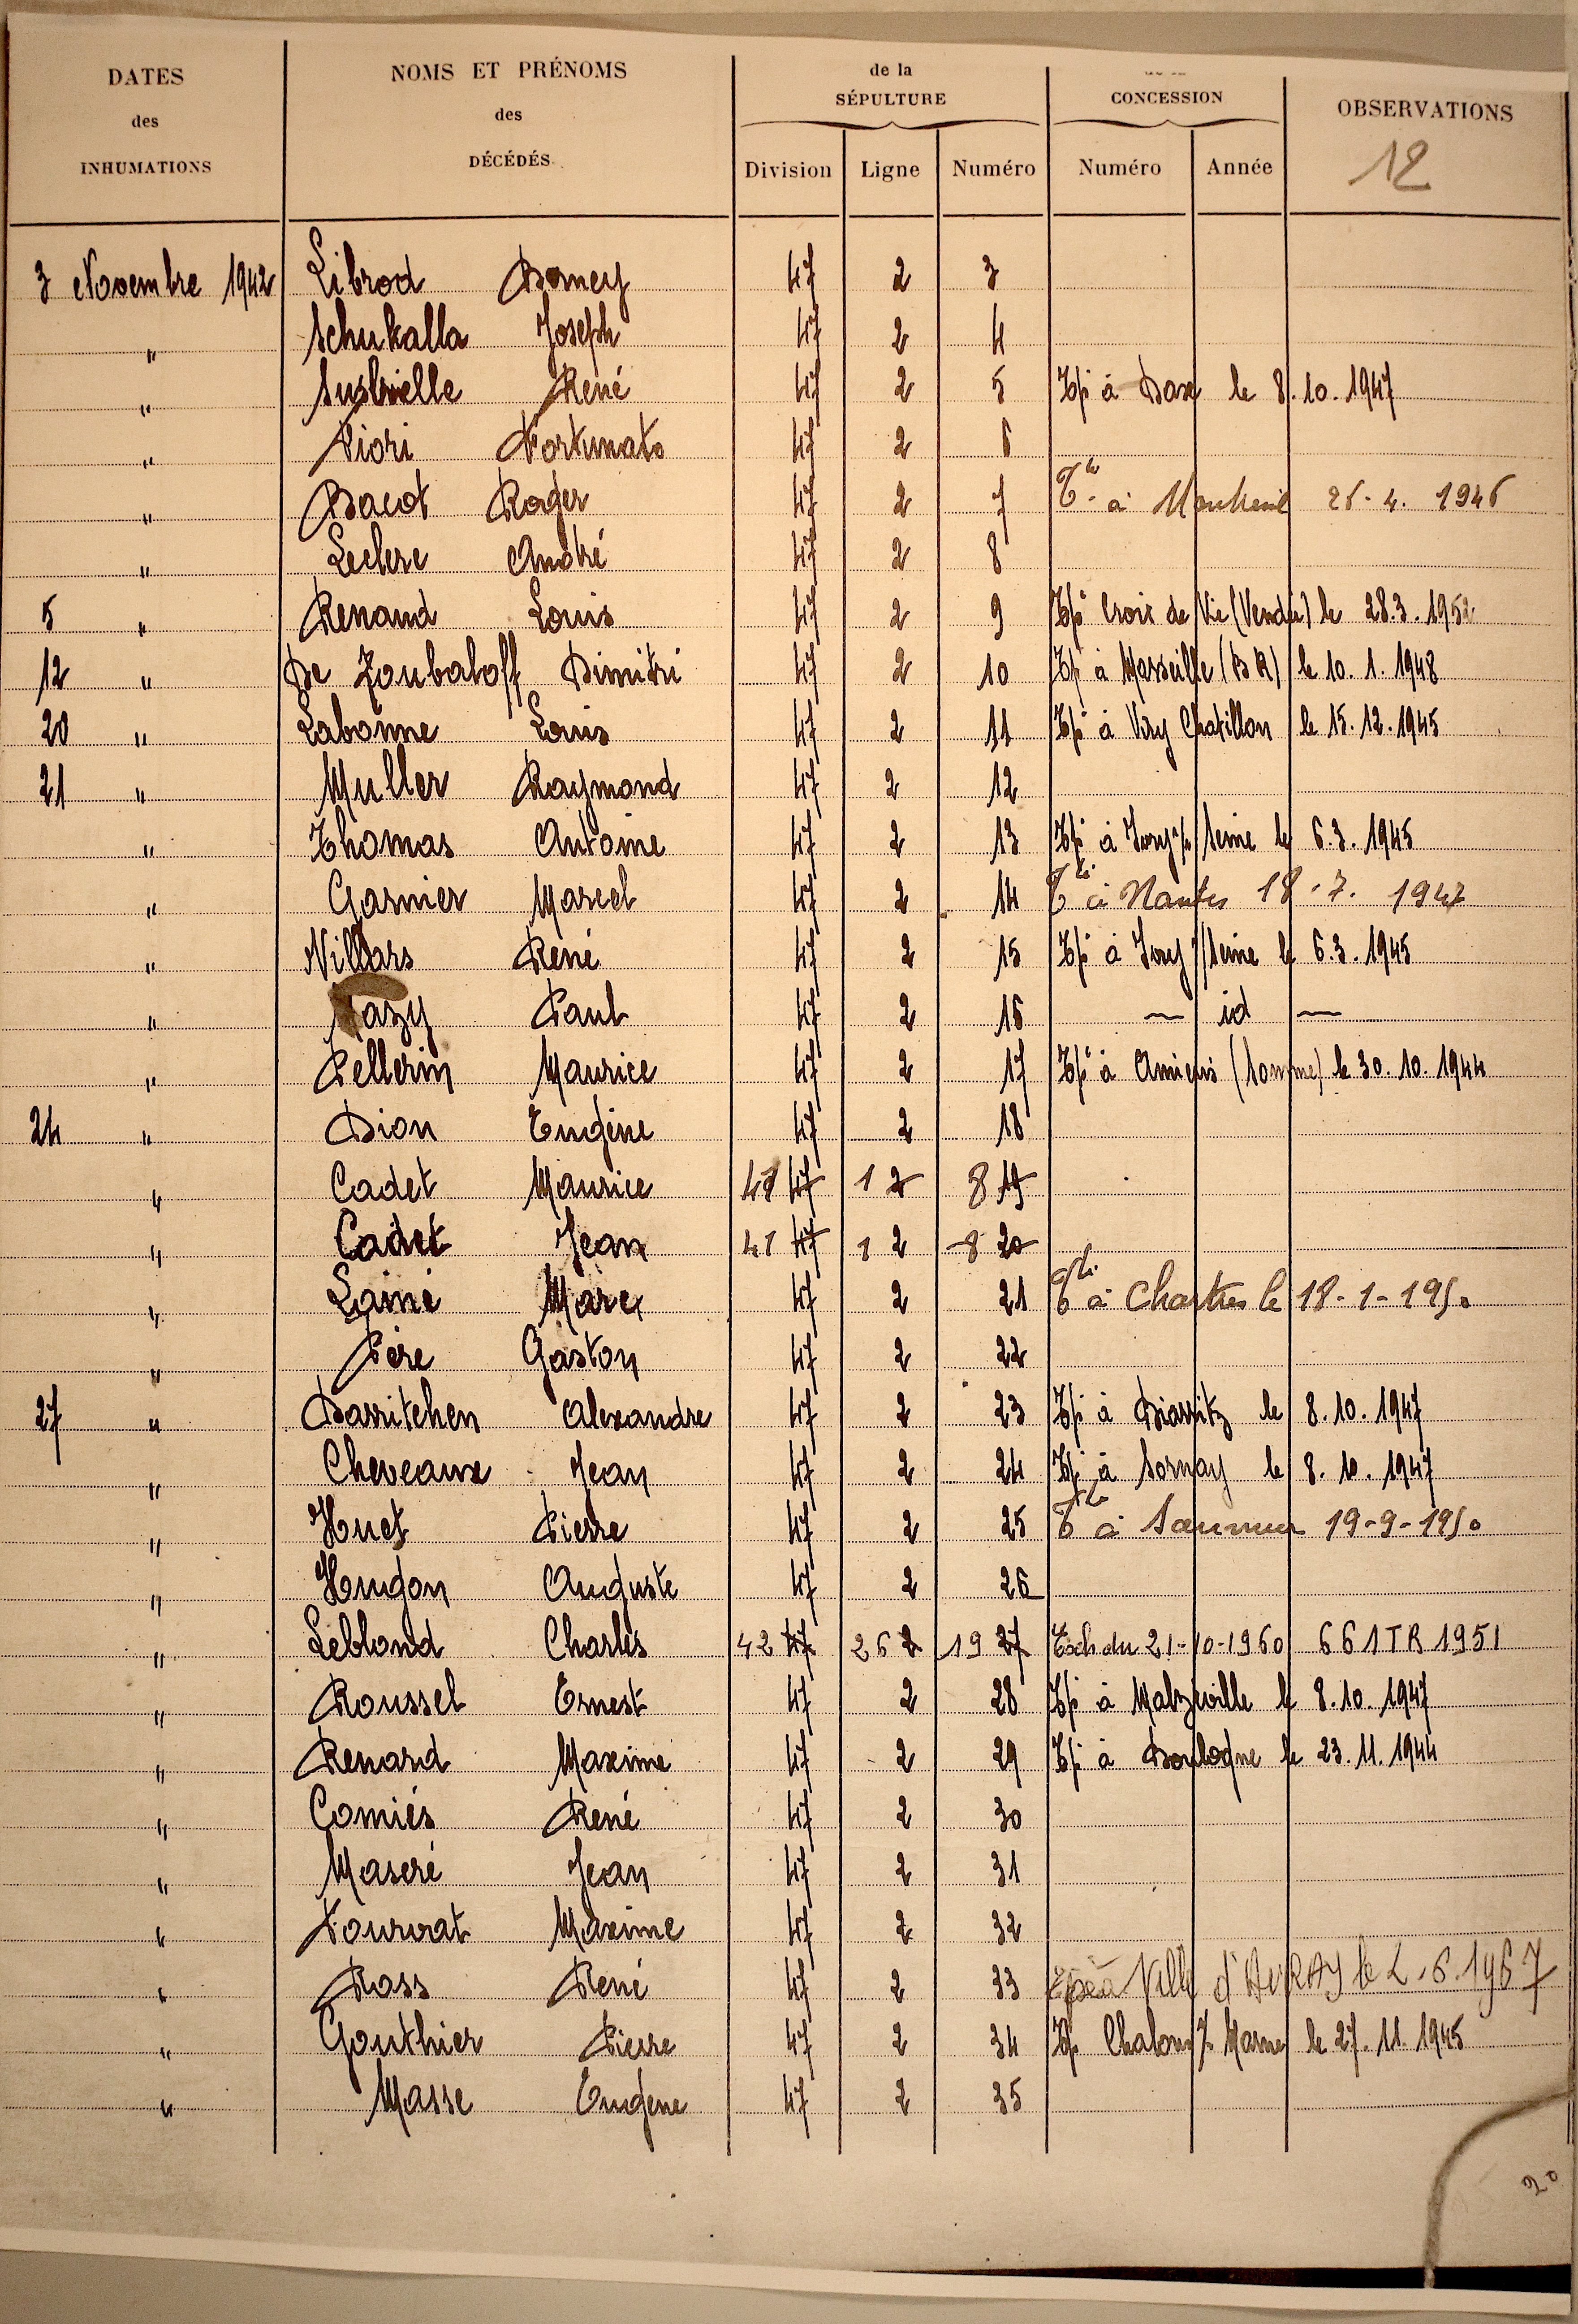 DATES des INHUMATIONS
NOMS ET PRÉNOMS des DÉCÉDÉS
de la SÉPULTURE
CONCESSION
OBSERVATIONS
12
Division Ligne Numéro Numéro Année
3 Novembre 1942 Librod Romey 47 2 3
" Schukalla Joseph 47 2 4
" Susbielle René 47 2 5 Tpé à Dax le 8.10.1947
" Fiori Fortunato 47 2 6
" Bacot Roger 47 2 7 à 26-4. 1946
" Leclerc André 47 2 8
5 " Renaud Louis 47 2 9 Tpé Croix de Vie (Vendée) le 28.3.1952
12 " De Zoubaloff Dimitri 47 2 10 Tpé à Marseille (B R) le 10.1.1948
20 " Labonne Louis 47 2 11 Tpé à Viry Chatillon le 15.12.1945
21 " Muller Raymond 47 2 12
" Thomas Antoine 47 2 13 Tpé à Ivry s/ Seine le 6.3.1945
" Garnier Marcel 47 2 14 à Nantes 18-7. 1947
" Villars René 47 2 15 Tpé à Ivry s/ Seine le 6.3.1945
" Paul 47 2 16 — id —
" Pellerin Maurice 47 2 17 Tpé à Amiens (Somme) le 30.10.1944
24 " Dion Eugène 47 2 18
" Cadet Maurice 41 47 1 2 8 19
" Cadet Jean 41 47 1 2 8 20
" Lainé Marc 47 2 21 à Chartres le 18-1-1950
" Père Gaston 47 2 22
27 " Darritchen Alexandre 47 2 23 Tpé à Biarritz le 8.10.1947
" Cheveaux Jean 47 2 24 Tpé à Sornay le 8.10.1947
" Huet Pierre 47 2 25 à Saumur 19-9-1950
" Hugon Auguste 47 2 26
" Leblond Charles 42 47 26 2 19 27 Ech du 21-10-1960 661 TR 1951
" Roussel Ernest 47 2 28 Tpé à Malzéville le 8.10.1947
" Renard Maxime 47 2 29 Tpé à Boulogne le 23.11.1944
" Comiés René 47 2 30
" Maseré Jean 47 2 31
" Fourrat Maxime 47 2 32
" Rass René 47 2 33 à Ville d'AVRAY le 2.6.1967
" Gouthier Pierre 47 2 34 Tpé Chalons s/ Marne le 27.11.1945
" Masse Eugene 47 2 35
20